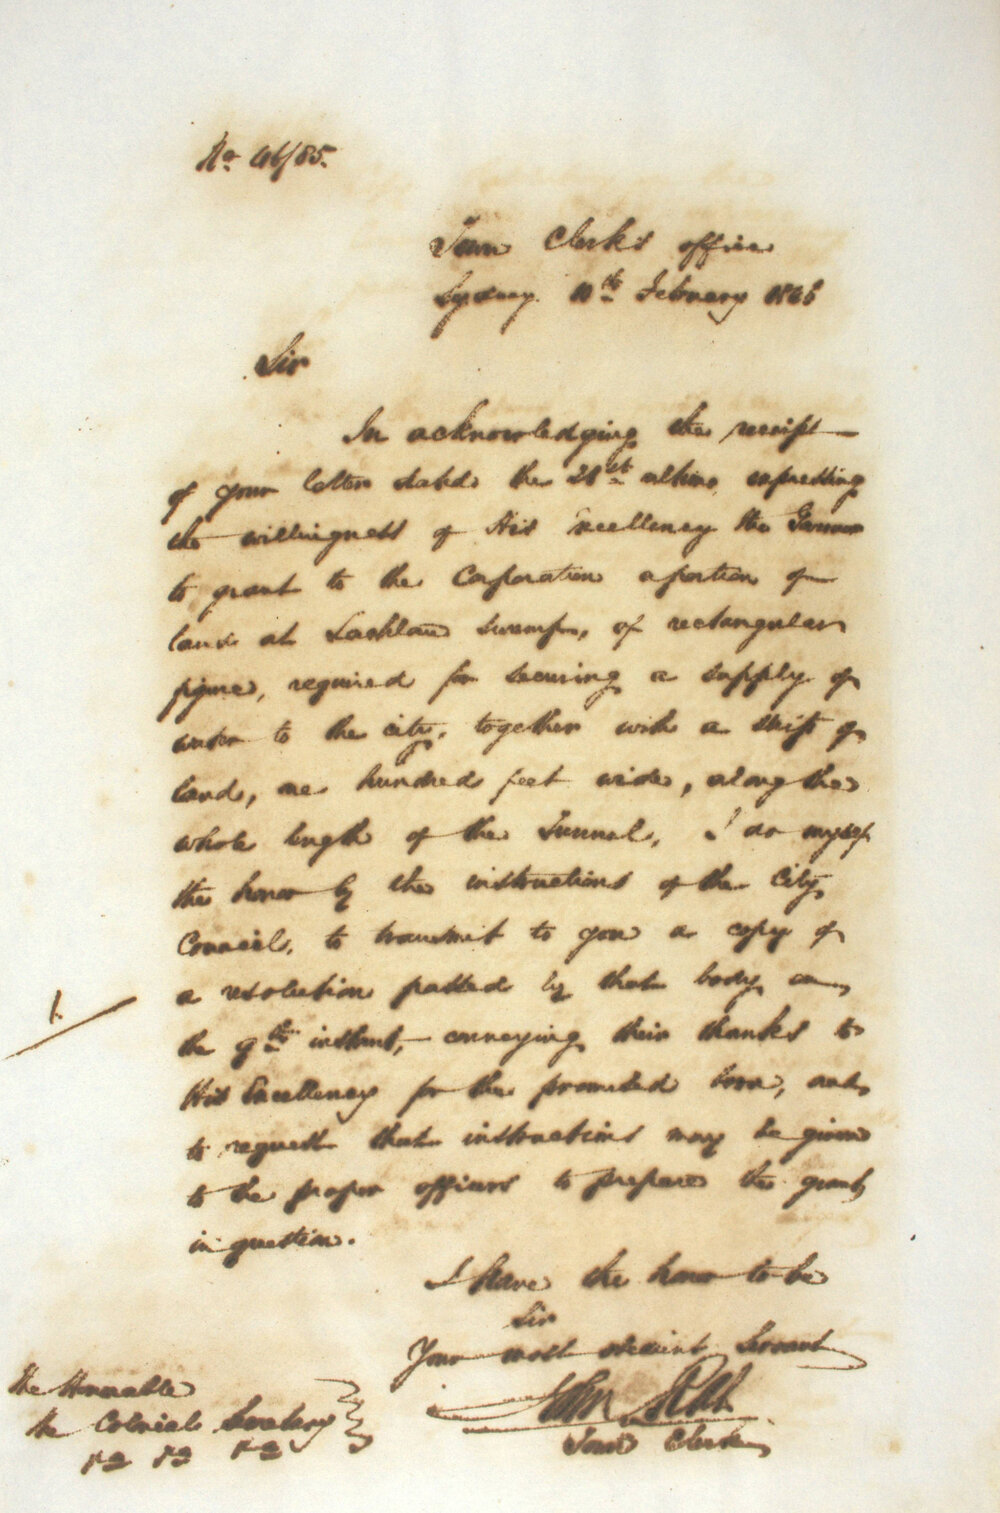 No. 46/85.
Town Clerks office
Sydney 10th February 1846
Sir
In acknowledging the receipt
of your letter dated the 28st ultimo, expressing
the willingness of His Excellency the Governor
to grant to the Corporation a portion of
land at Lachlan Swamp, of rectangular
figure, required for securing a supply of
water to the city, together with a strip of
land, one hundred feet wide, along the
whole length of the Tunnel, I do myself
the honor by the instructions of the City
Council, to transmit to you a copy of
a resolution passed by that body on
1.
the 9th instant, conveying their thanks to
His Excellency for the promised boon, and
to request that instructions may be given
to the proper officers to prepare the grant
in question.
I have the honor to be
Sir
Your most obedient Servant
Town Clerk
The Honorable
the Colonial Secretary